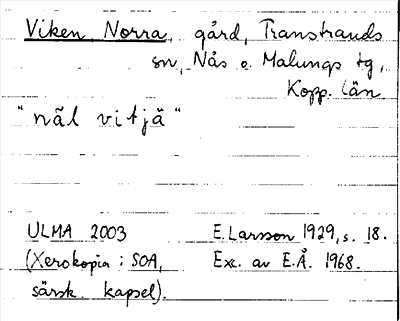 Viken Norra, gård, Transtrands
sn, Nås o. Malungs tg,
Kopp. län
"näl vitjä"
ULMA 2003 E. Larsson 1929, s. 18.
(Xerokopia i SOA, Exc. av E.Å. 1968.
särsk. kapsel).